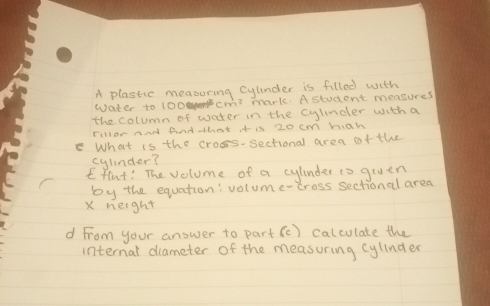 A plastic measuring cylinder is filled with
water to 100 cm³ mark. A student measures
the column of water in the cylinder with a
ruler and find that it is 20 cm high
c What is the cross-sectional area of the
cylinder?
Hint: The volume of a cylinder is given
by the equation: volume = cross sectional area
x height
d From your answer to part (c) calculate the
internal diameter of the measuring cylinder